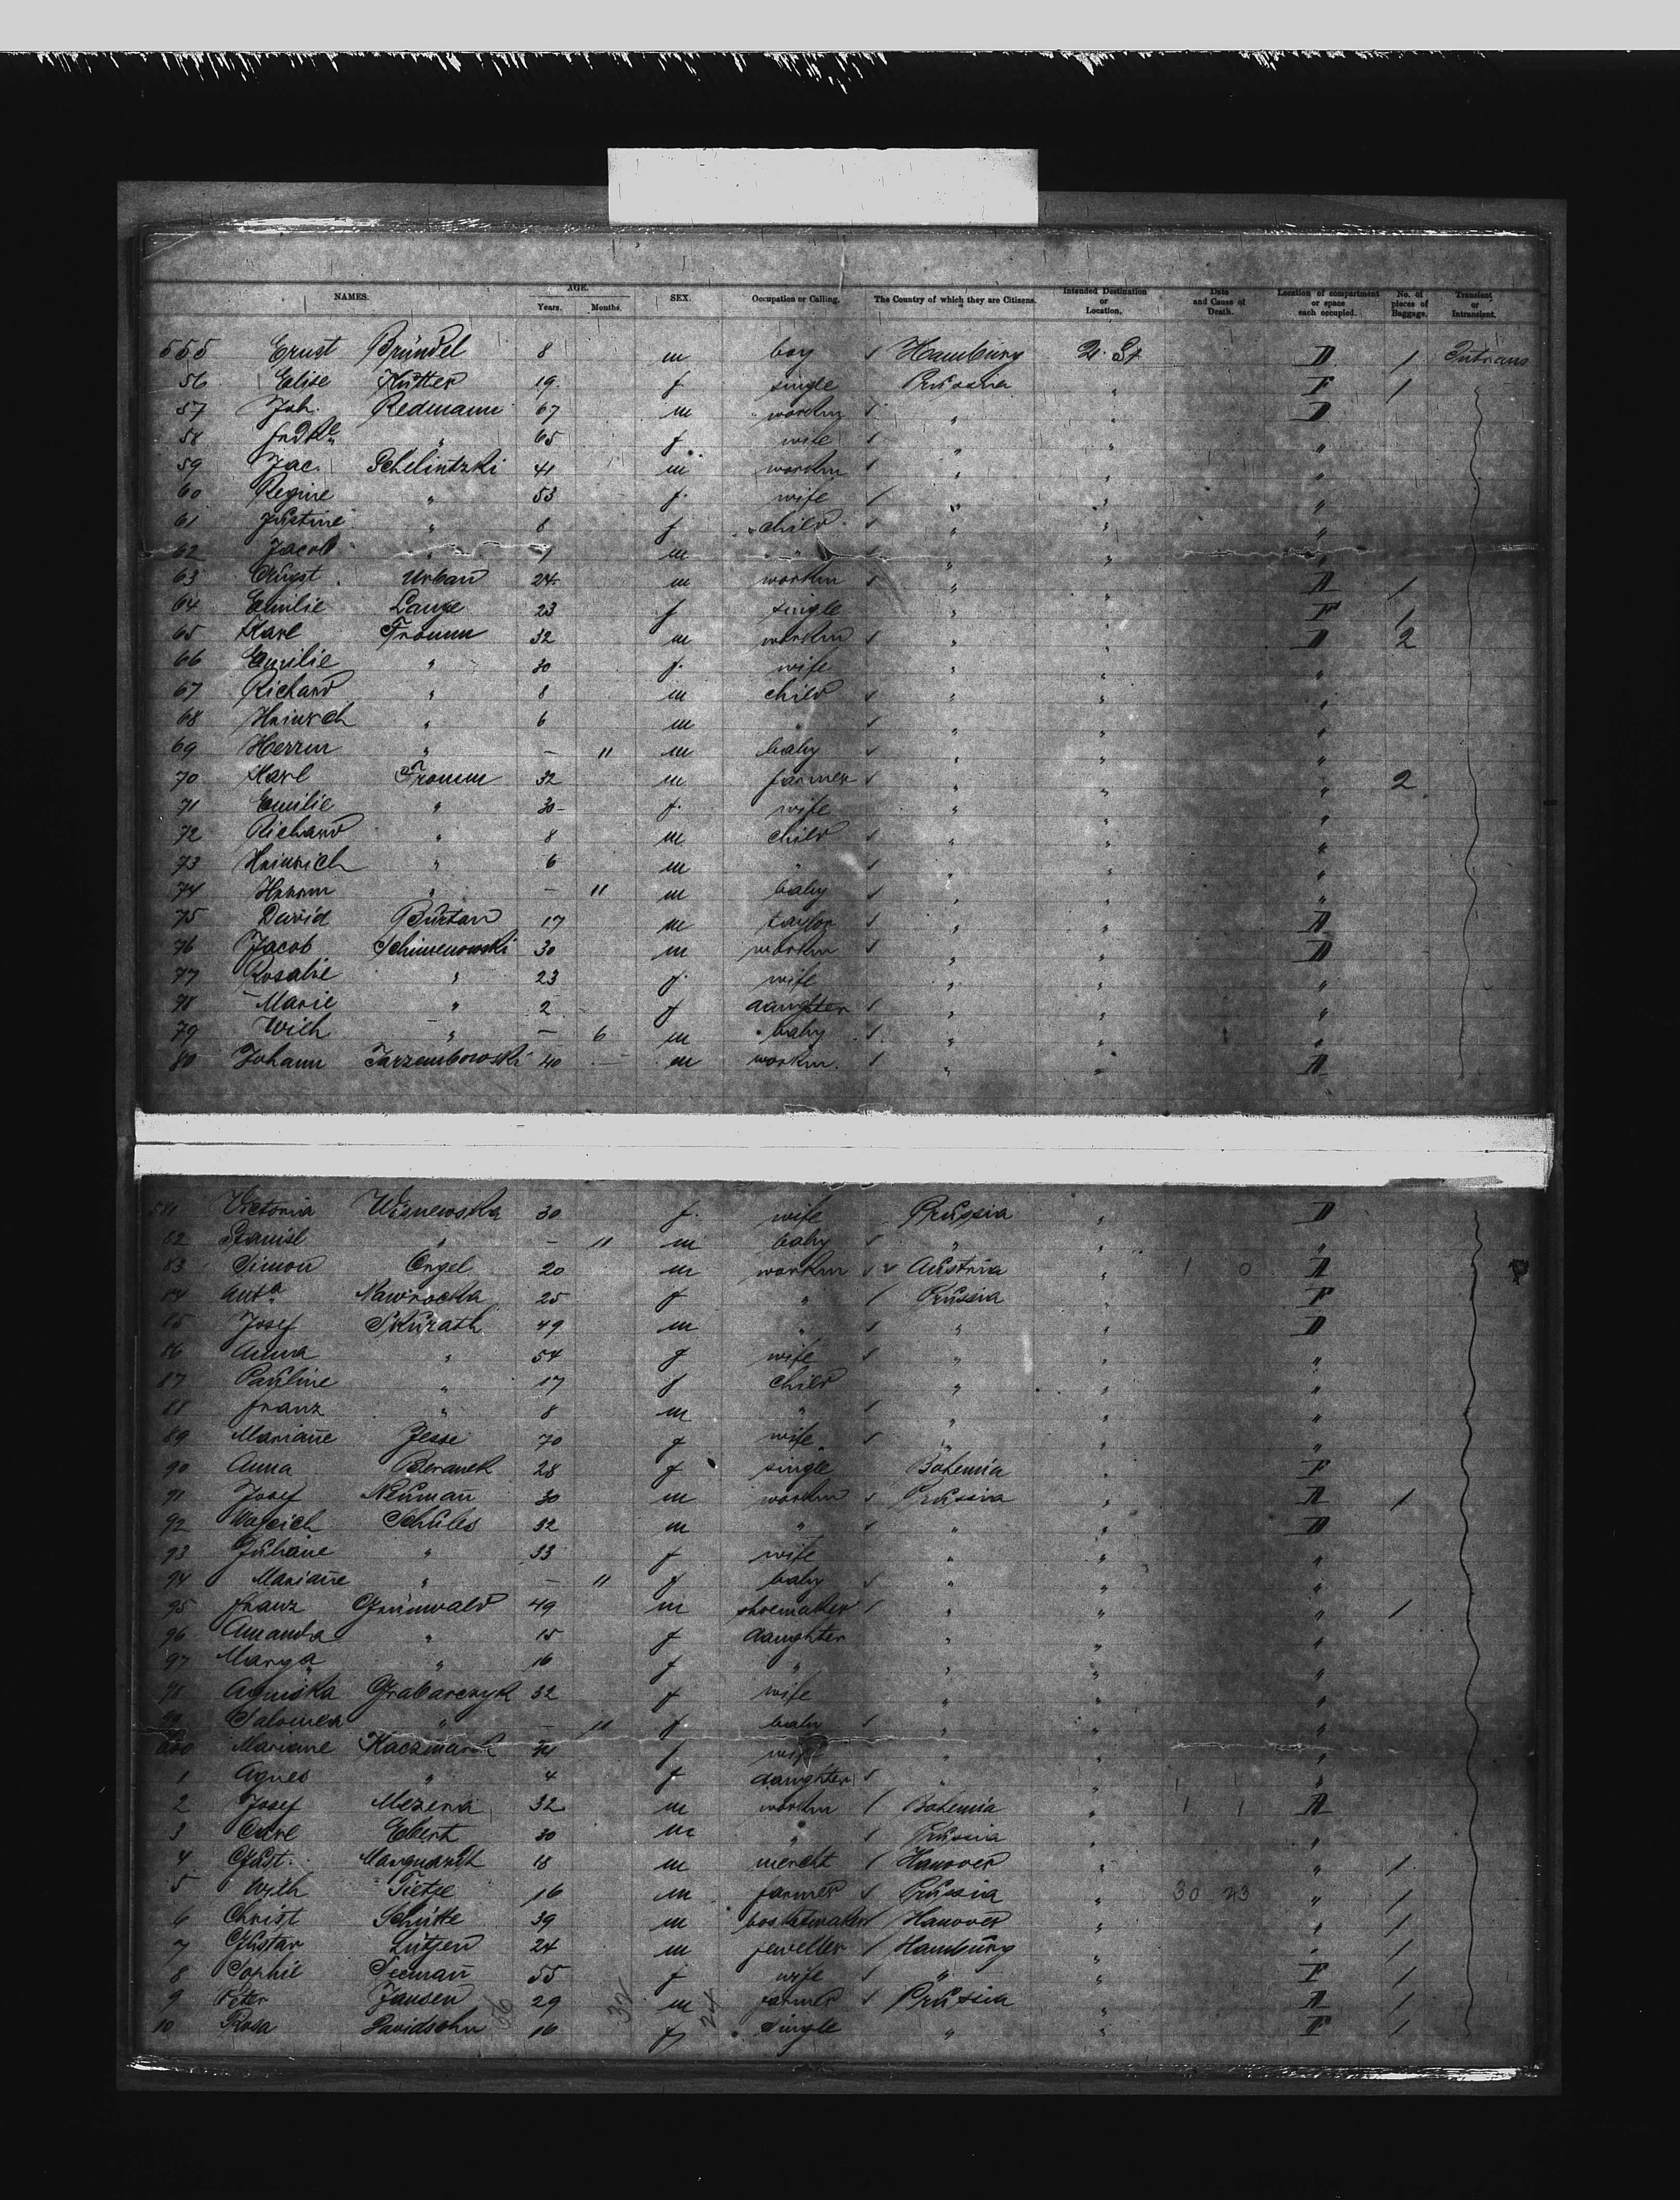 NAMES. AGE. Years. Months. SEX. Occupation or Calling. The Country of which they are Citizens. Intended Destination or Location. Date and Cause of Death. Location of compartment or space each occupied. No. of pieces of Baggage. Transient or Intransient.
555 Ernst Bründel 8 m boy Hamburg U. St D 1 Intrans
56 Elise Kutter 19 f single Prussia " F 1
57 Joh. Redmann 67 m workm " " D
58 " 65 f wife " " "
59 Jac. Schelintzki 41 m workm " " "
60 Regine " 53 f. wife " " "
61 Justine " 8 f child " " "
62 Jacob " m " " " "
63 August Urban 24 m workm " " A 1
64 Emilie Lange 23 f single " " F 1
65 Karl Fromm 32 m workm " " D 2
66 Emilie " 30 f. wife " " "
67 Richard " 8 m child " " "
68 Heinrch " 6 m " " " "
69 Herrm " – 11 m baby " " "
70 Karl Fromm 32 m farmer " " " 2
71 Emilie " 30 f. wife " " "
72 Richard " 8 m child " " "
73 Heinrich " 6 m " " " "
74 Herrm " – 11 m baby " " "
75 David Burtan 17 m taylor " " A
76 Jacob Schimenowski 30 m workm " " D
77 Rosalie " 23 f. wife " " "
78 Marie " 2 f daughter " " "
79 Wilh " – 6 m baby " " "
80 Johann Jarzembowski 40 – m workm. " " A
581 Victoria Wisnewska 30 f. wife Prussia " D
82 Stanisl " – 11 m baby " " "
83 Simon Engel 20 m workm Austria " 1 0 A
84 Anta Nawrocka 25 f " Prussia " F
85 Josef Skurath 49 m " " " D
86 Anna " 54 f wife " " "
87 Pauline " 17 f child " " "
88 Franz " 8 m " " " "
89 Mariane Jesse 70 f wife " " "
90 Anna Beranek 28 f single Bohemia " F
91 Josef Neuman 30 m workm Prussia " A 1
92 Wojcich Schules 32 m " " " D
93 Juliane " 33 f wife " " "
94 Mariane " – 11 f baby " " "
95 Franz Grunwald 49 m shoemaker " " " 1
96 Amanda " 15 f daughter " " "
97 Marga " 16 f " " " "
98 Agniska Grabarczyk 32 f wife " " "
99 Salomea " – 11 f baby " " "
600 Mariane Kaczmarek 34 f wife " " "
1 Agnes " 4 f daughter " " "
2 Josef Mezera 32 m workm Bohemia " 1 1 A
3 Carl Ebert 30 m " Prussia " "
4 Gust. Marquardt 18 m mercht Hanover " " 1
5 Wilh Tietze 16 m farmer Prussia " 30 23 " 1
6 Christ Schütte 39 m Hanover " " 1
7 Gustav Lütjen 24 m jeweller Hamburg " " 1
8 Sophie Seeman 55 f wife " " F 1
9 Peter Jansen 29 m farmer Prussia " A 1
10 Rosa Davidsohn 16 f single " " F 1
56 32 24